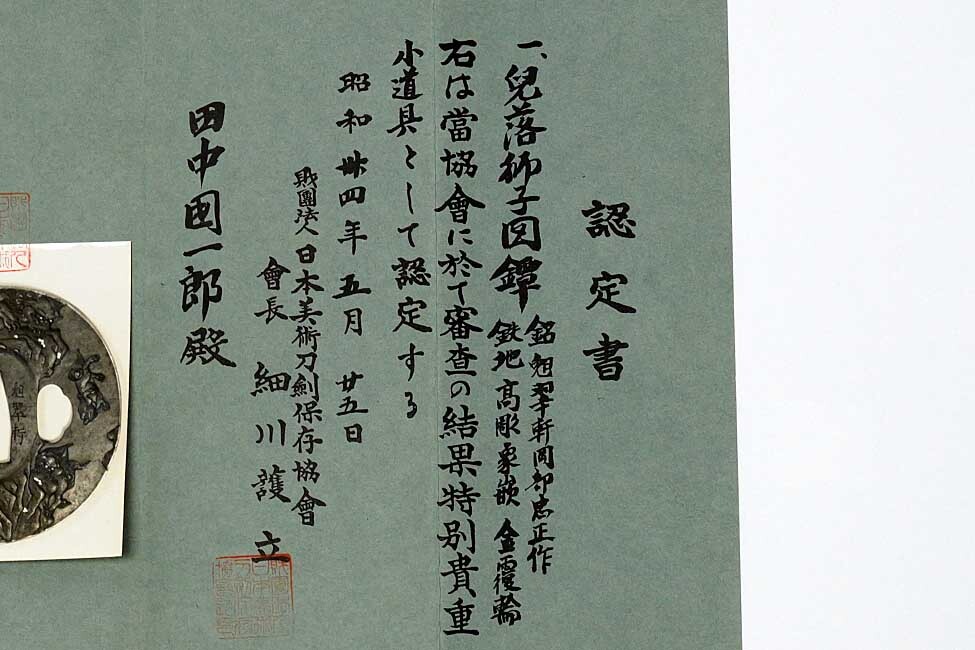 認定書
一、兒落獅子図鐔
銘 翹翠軒岡部忠正作
鉄地高彫象嵌 金覆輪
右は當協會に於て審査の結果特別貴重
小道具として認定する
昭和卅四年五月廿五日
財團法人日本美術刀劍保存協會
會長 細川護立
田中国一郎殿